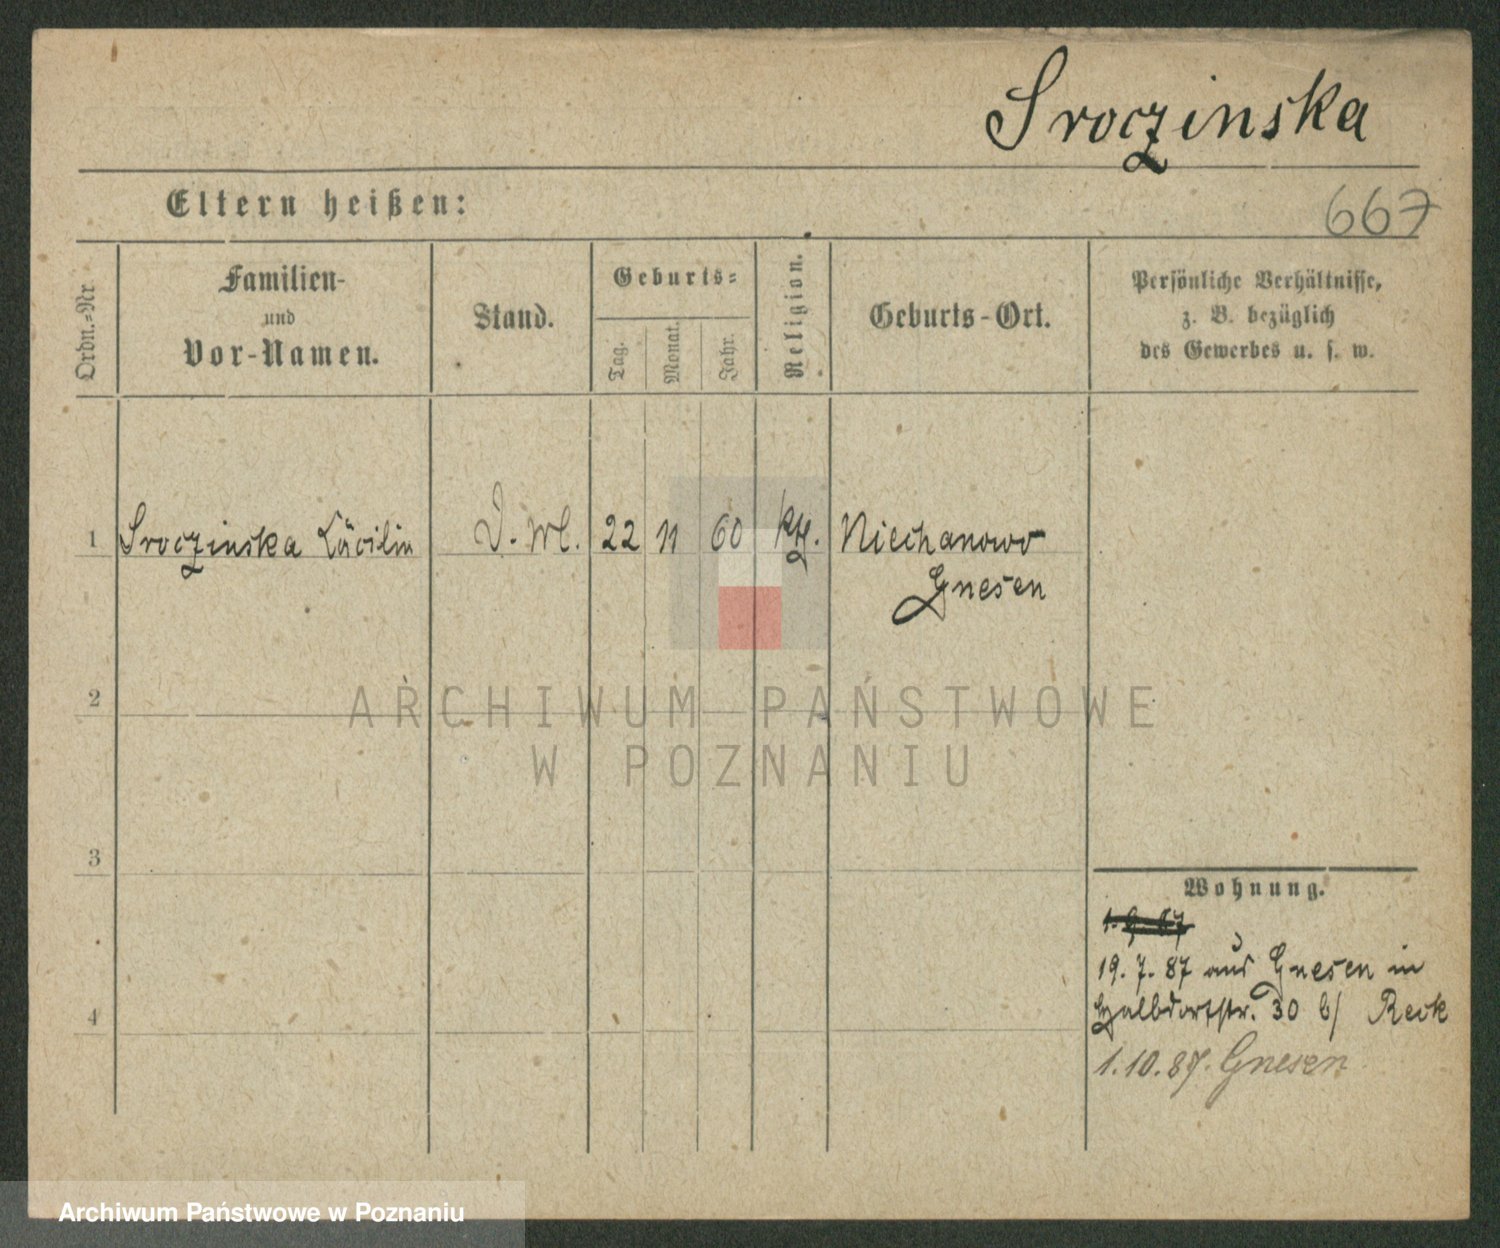 Sroczinska
Eltern heißen:
667
Ordn.-Nr
Familien-
und
Vor-Namen.
Stand.
Geburts-
Tag.
Monat.
Jahr.
Religion.
Geburts-Ort.
Persönliche Verhältnisse,
z. B. bezüglich
des Gewerbes u. s. w.
1 Sroczinska Cäcilia 22 11 60 kth. Niechanowo
Gnesen
ARCHIWUM PAŃSTWOWE
2
W POZNANIU
3
Wohnung.
19. 7. 87 aus Gnesen in
Halbdorfstr. 30 b/ Reck
4
1.10.87. Gnesen
Archiwum Państwowe w Poznaniu